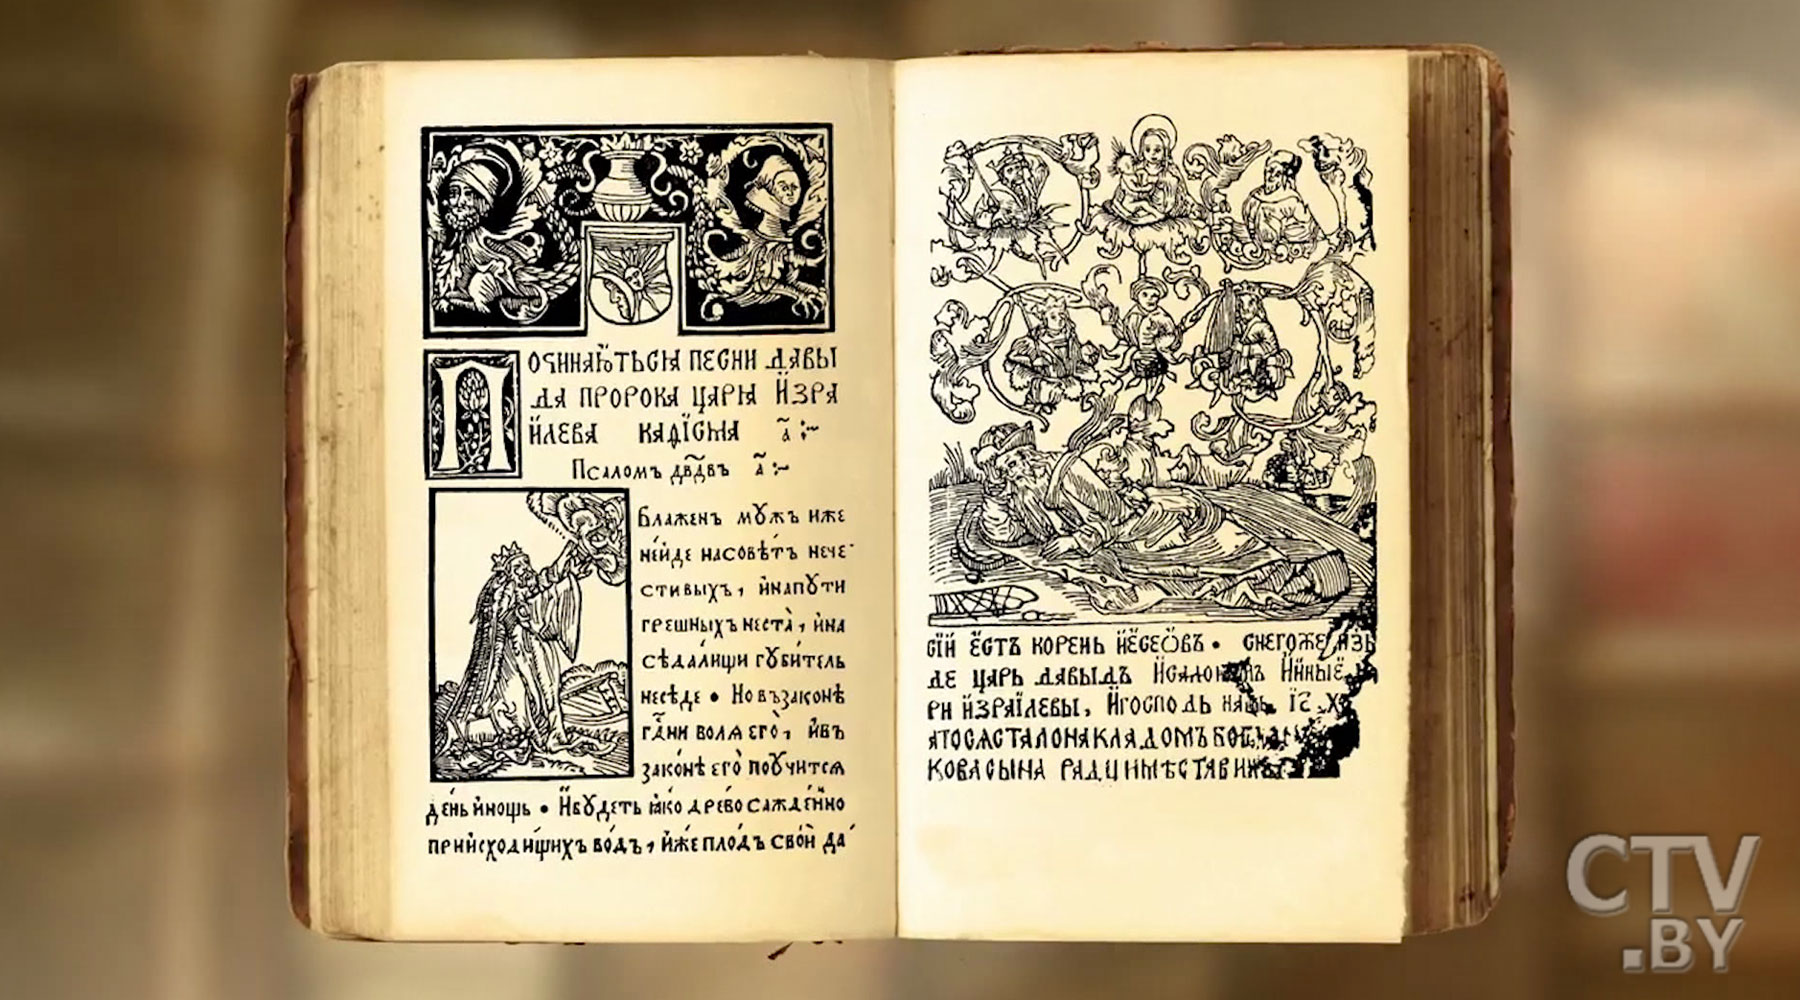 ПОЧИНАЮТЬСЯ ПЕСНИ ДАВЫ
ДА ПРОРОКА ЦАРЯ ЙЗРА
ЙЛЕВА КАФЇСМА А҃ :~
Псаломъ дв҃двъ а҃ :~
Блажен мужъ иже
нейде насовѣтъ нече
стивыхъ, инапути
грешныхъ неста, ина
сѣдалищи губитель
несѣде • Но въ законѣ
гд҃ни воля его, ивъ
законѣ его поучится
день инощь • Ибудеть ꙗко древо сажденно
приисходищихъ водъ, иже плодъ свой да
СЇЙ ЕСТЬ КОРЕНЬ ЙЕСЕѠВЪ • СНЕГОЖЕ ИЗЫ
ДЕ ЦАРЬ ДАВЫДЪ ИСАЛОМ ИИНЫЕ
РИ ИЗРАЇЛЕВЫ, ИГОСПОДЬ НАШЬ ІС҃ Х
АТОСѦСТАЛОНАКЛАДОМЪ
КОВАСЫНА РАДЦИ МѢСТА
CTV
.BY